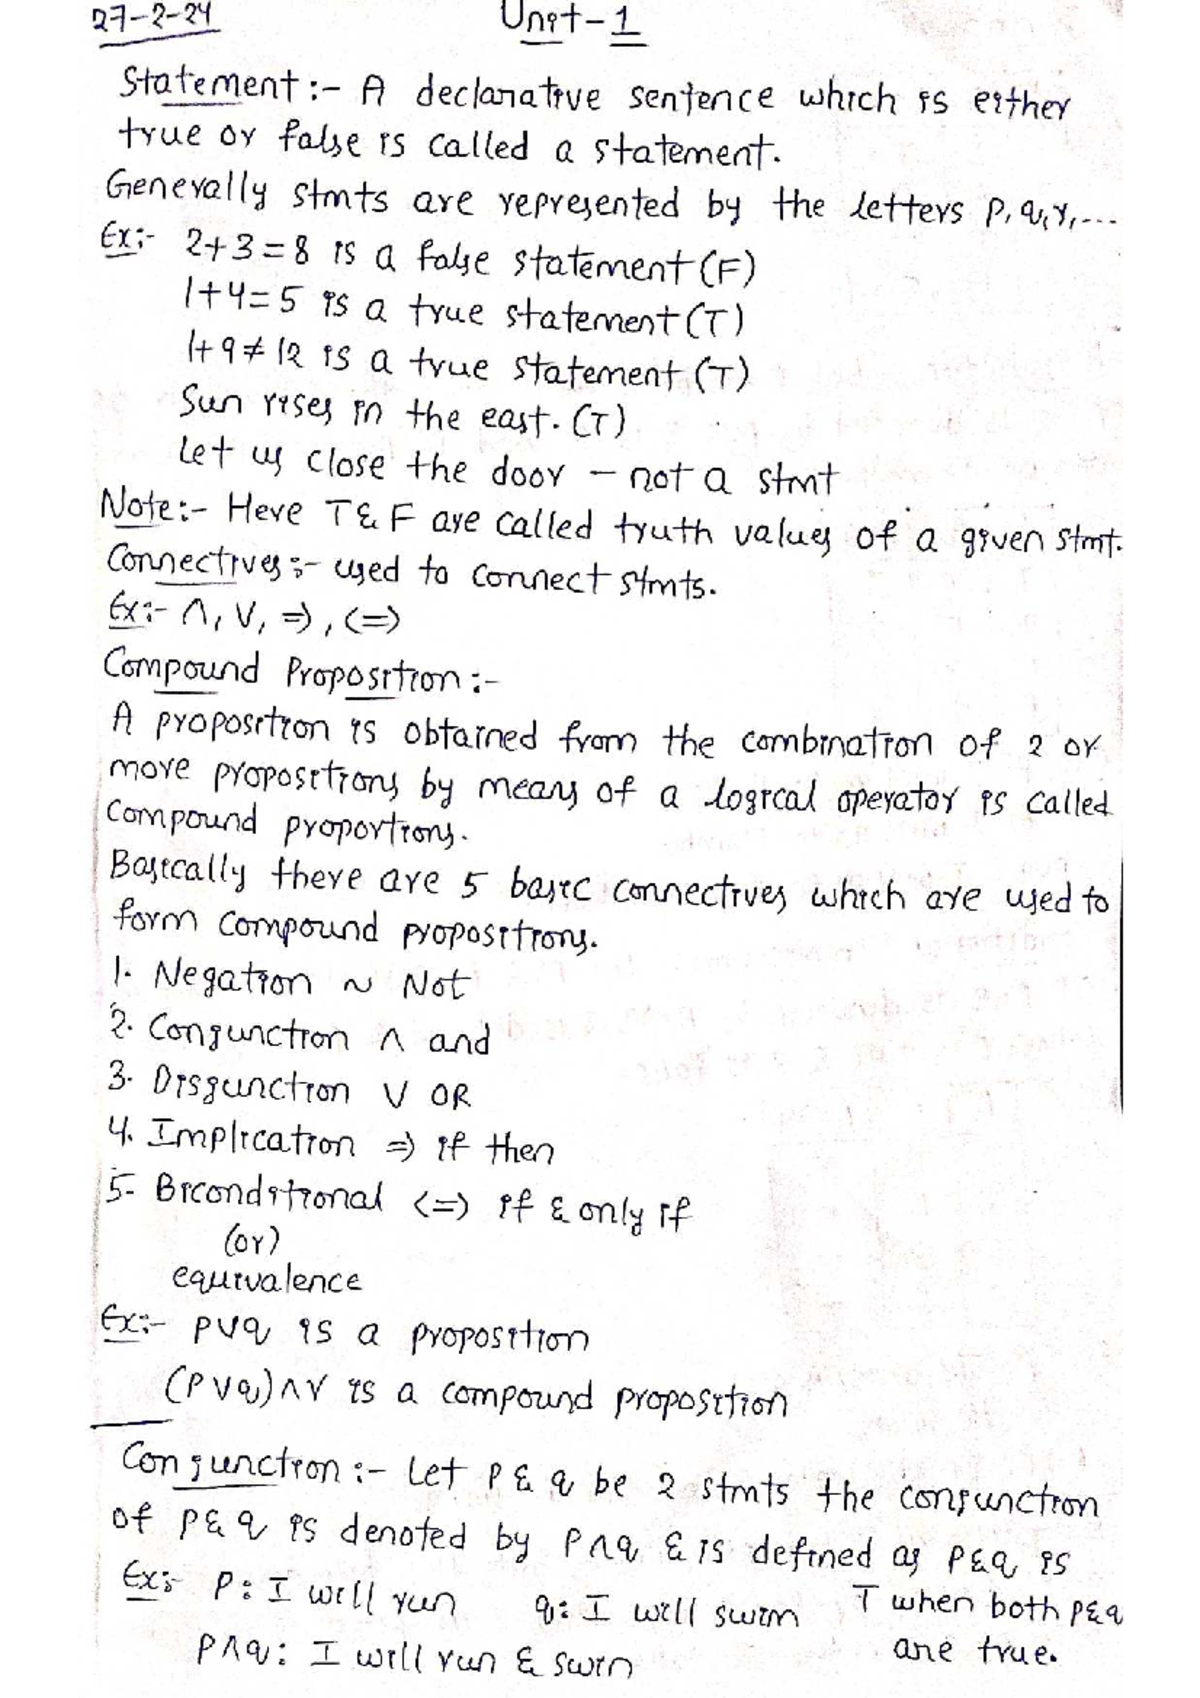 27-2-24 Unit-1
Statement :- A declarative sentence which is either
true or false is called a statement.
Generally stmts are represented by the letters p, q, r, ...
Ex:- 2+3=8 is a false statement (F)
1+4=5 is a true statement (T)
1+9≠12 is a true statement (T)
Sun rises in the east. (T)
Let us close the door - not a stmt
Note:- Here T & F are called truth values of a given stmt.
Connectives :- used to connect stmts.
Ex:- ∧, ∨, ⇒, <=>
Compound Proposition :-
A proposition is obtained from the combination of 2 or
more propositions by means of a logical operator is called
Compound proportions.
Basically there are 5 basic connectives which are used to
form compound propositions.
1. Negation ~ Not
2. Conjunction ∧ and
3. Disjunction ∨ OR
4. Implication ⇒ if then
5- Biconditional <=> if & only if
(or)
equivalence
Ex:- p∨q is a proposition
(p∨q)∧r is a compound proposition
Conjunction :- Let p & q be 2 stmts the conjunction
of p & q is denoted by p∧q & is defined as p&q is
T when both p&q
are true.
Ex:- P: I will run q: I will swim
p∧q: I will run & swin